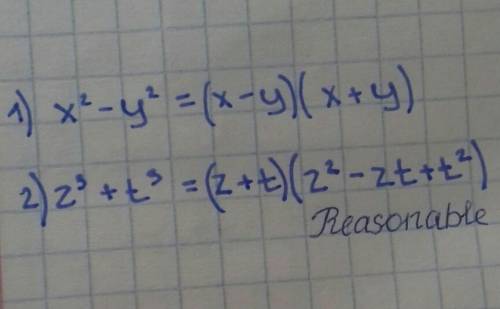 1) x² - y² = (x - y)(x + y)
2) z³ + t³ = (z + t)(z² - zt + t²)
Reasonable